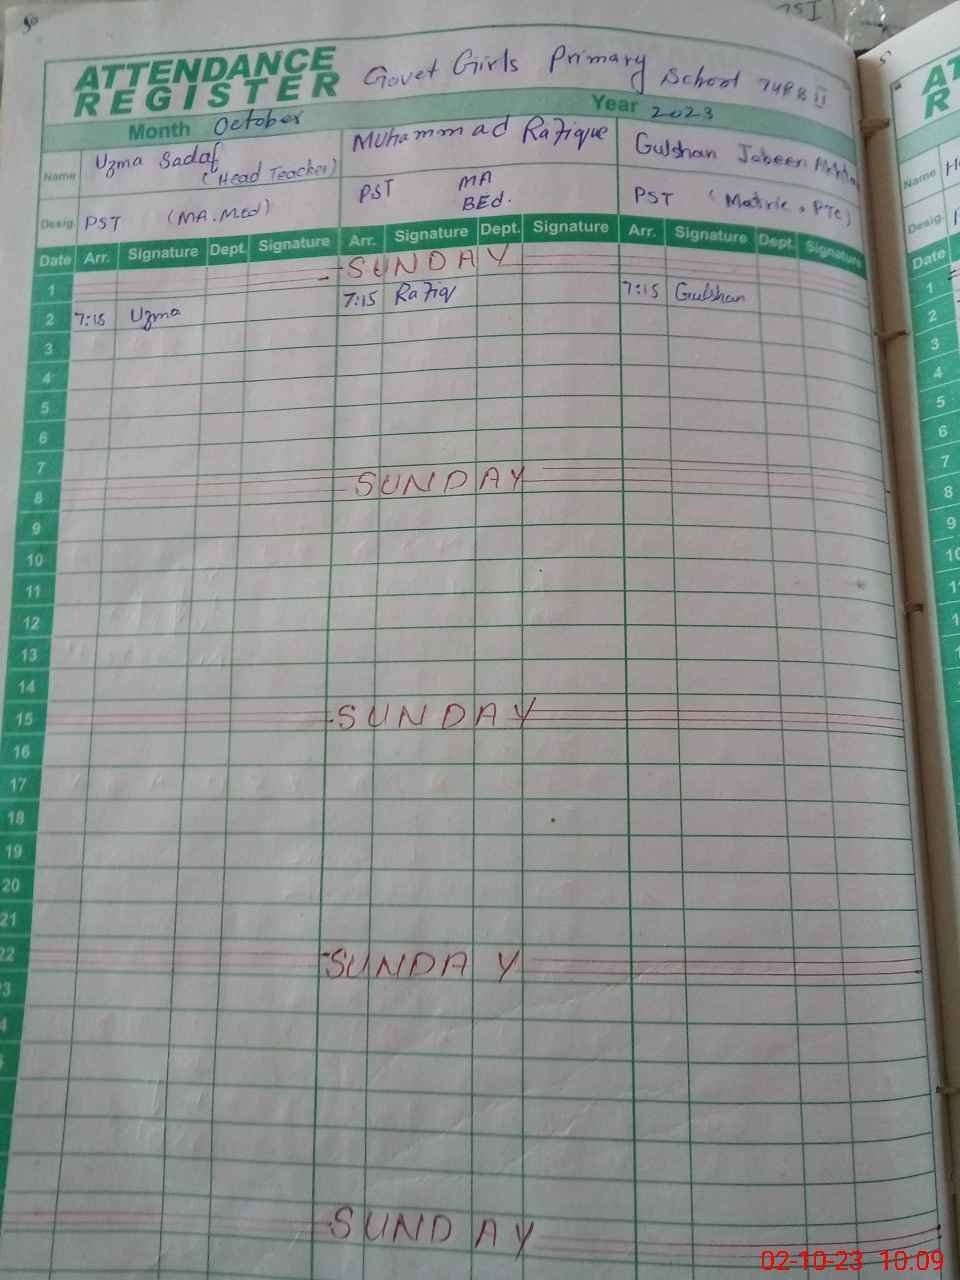 50
75I
ATTENDANCE
REGISTER
Govet Girls Primary School 74RB II
Month October
Year 2023
Name Uzma Sadaf (Head Teacher)
Muhammad Rafique
Gulshan Jabeen
Desig. PST (MA.Med)
PST MA BEd.
PST (Matric, PTC)
Date Arr. Signature Dept. Signature Arr. Signature Dept. Signature Arr. Signature Dept. Signature
1 SUNDAY
2 7:15 Uzma 7:15 Rafiq 7:15 Gulshan
3
4
5
6
7
8 SUNDAY
9
10
11
12
13
14
15 SUNDAY
16
17
18
19
20
21
22 SUNDAY
3
4
SUNDAY
AT
R
Name
Desig.
Date
1
2
3
4
5
6
7
8
9
10
11
12
02-10-23 10.09